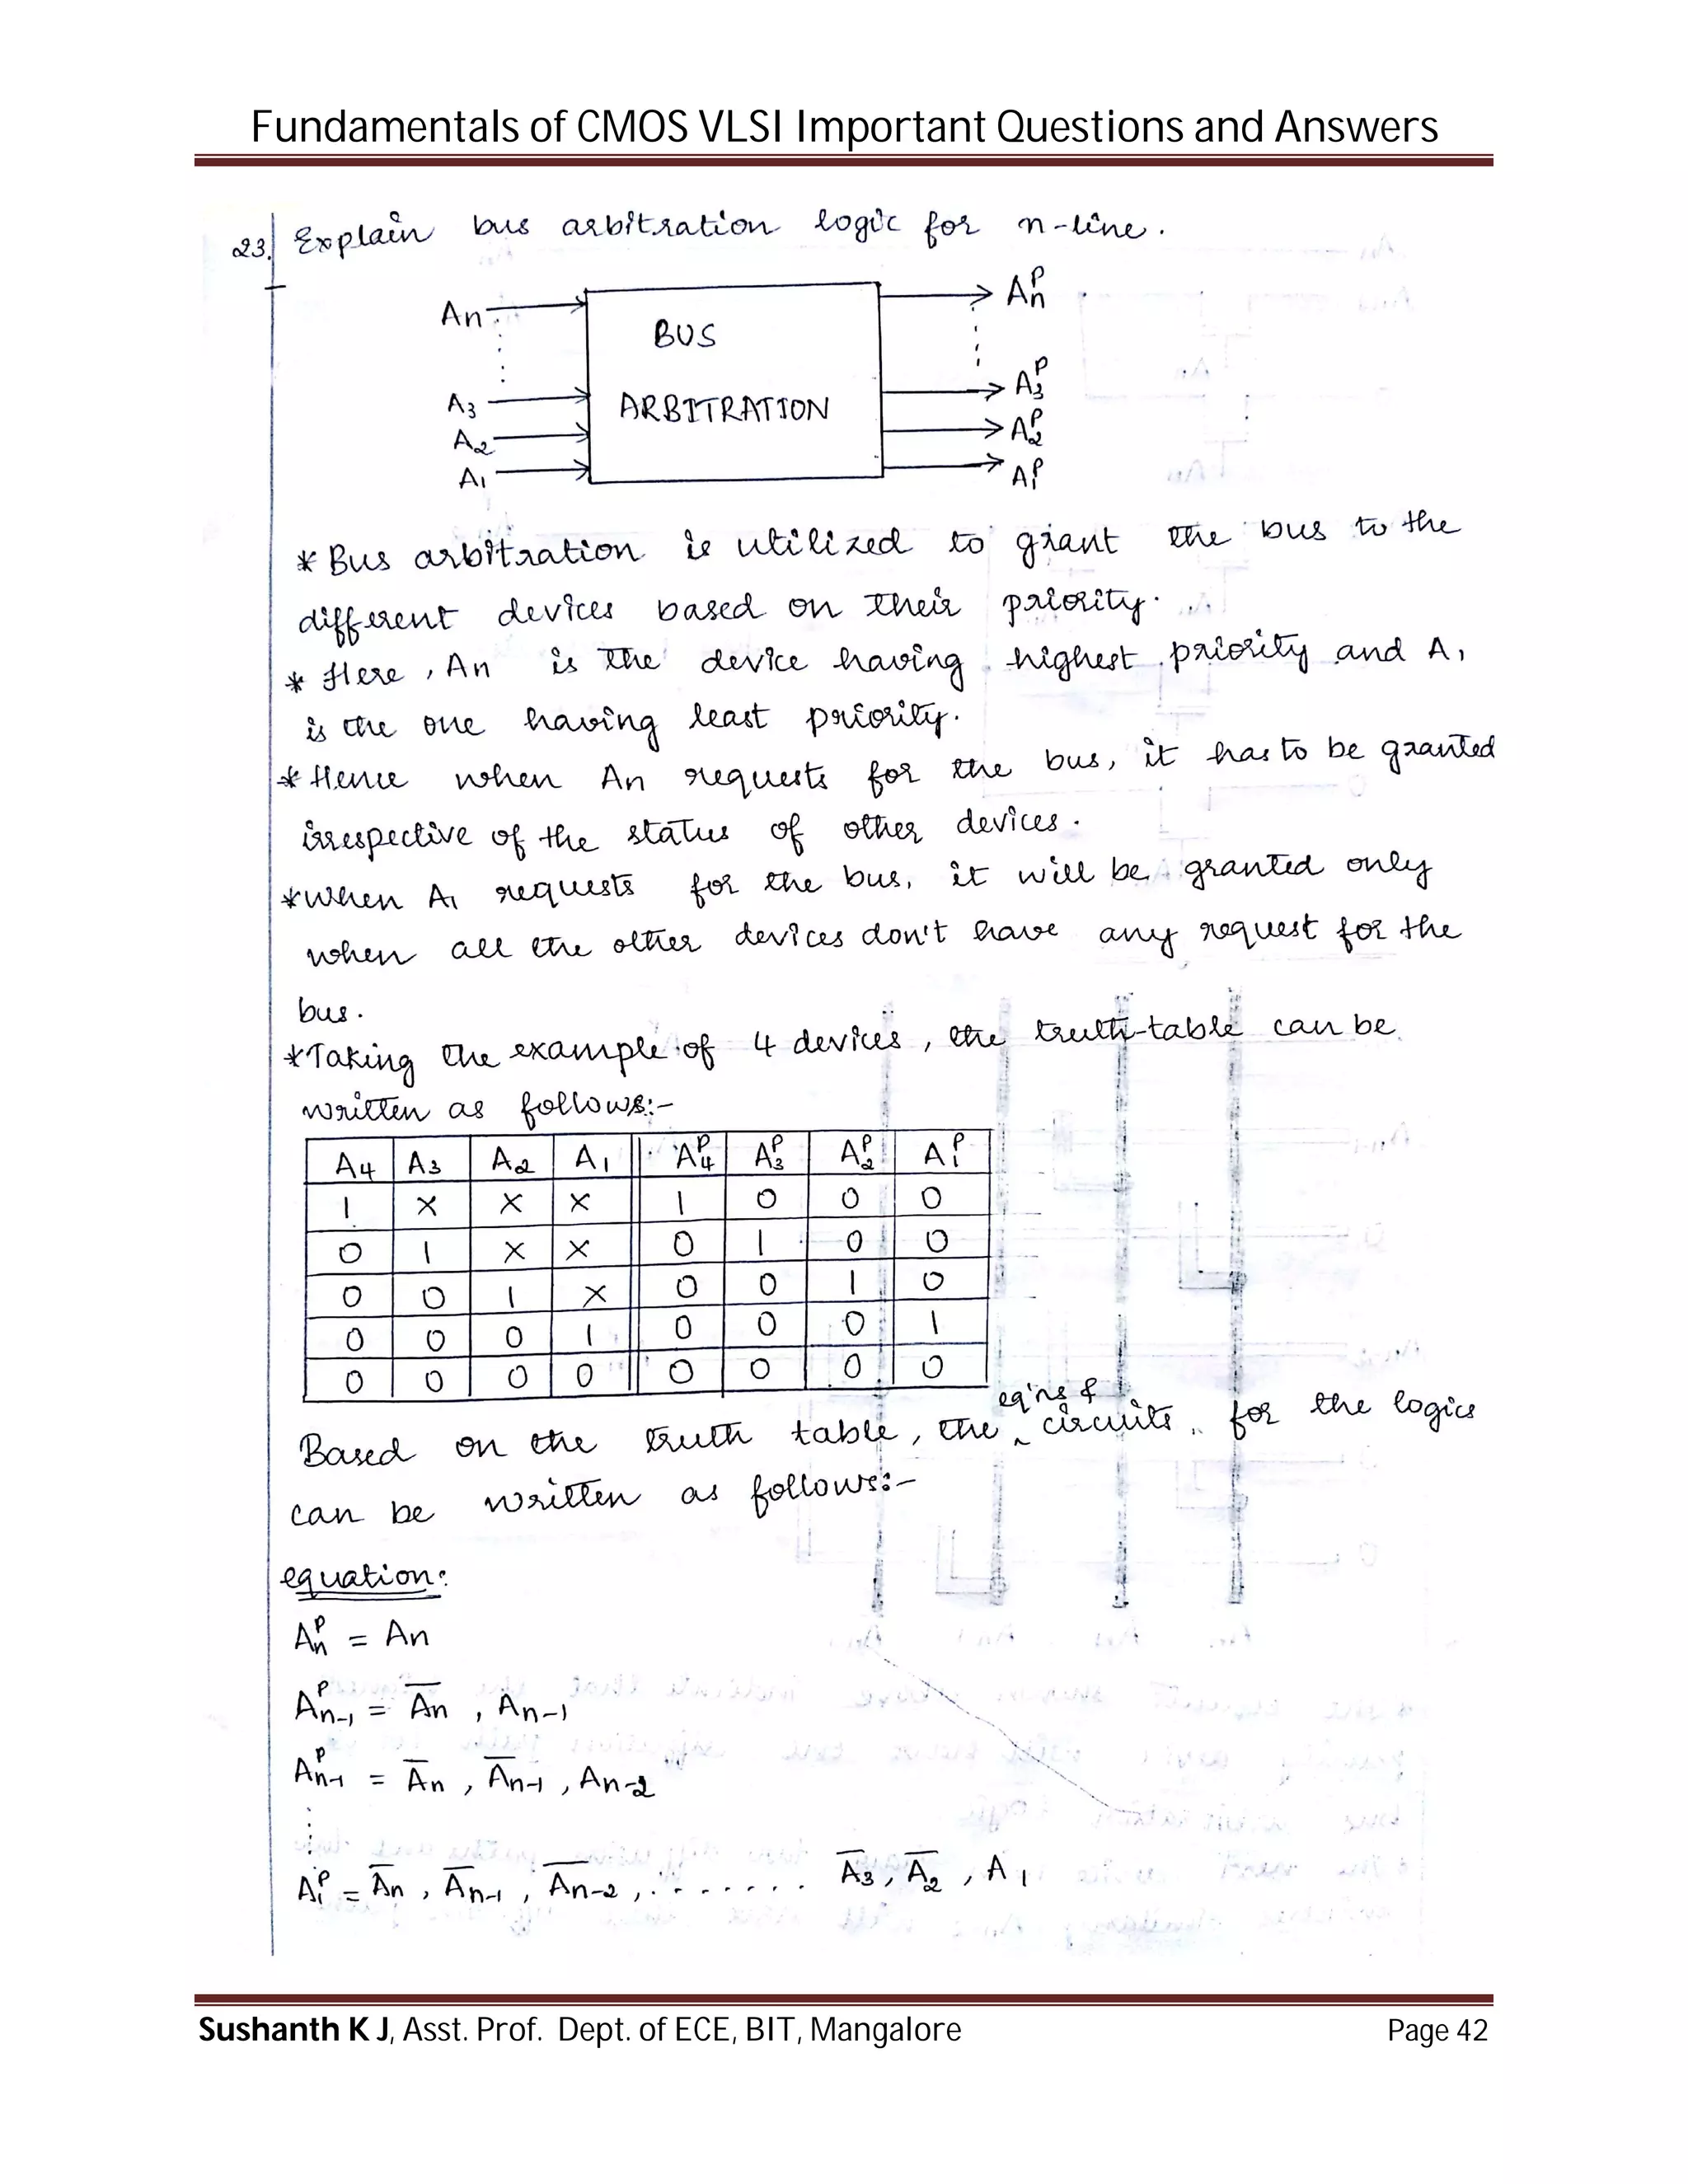 Fundamentals of CMOS VLSI Important Questions and Answers
23. Explain bus arbitration logic for n-line.
An
BUS
ARBITRATION
A3
A2
A1
Aₙᵖ
A₃ᵖ
A₂ᵖ
A₁ᵖ
* Bus arbitration is utilized to grant the bus to the
different devices based on their priority.
* Here, An is the device having highest priority and A1
is the one having least priority.
* Hence when An requests for the bus, it has to be granted
irrespective of the status of other devices.
* When A1 requests for the bus, it will be granted only
when all the other devices don't have any request for the
bus.
* Taking the example of 4 devices, the truth-table can be
written as follows:-
A4 A3 A2 A1 A₄ᵖ A₃ᵖ A₂ᵖ A₁ᵖ
1 X X X 1 0 0 0
0 1 X X 0 1 0 0
0 0 1 X 0 0 1 0
0 0 0 1 0 0 0 1
0 0 0 0 0 0 0 0
Based on the truth table, the eq'ns & circuits for the logics
can be written as follows:-
equation:
Aₙᵖ = An
Aₙ₋₁ᵖ = A̅n , An-1
Aₙ₋₁ᵖ = A̅n , A̅n-1 , An-2
A₁ᵖ = A̅n , A̅n-1 , A̅n-2 , ........ A̅3 , A̅2 , A1
Sushanth K J, Asst. Prof. Dept. of ECE, BIT, Mangalore
Page 42